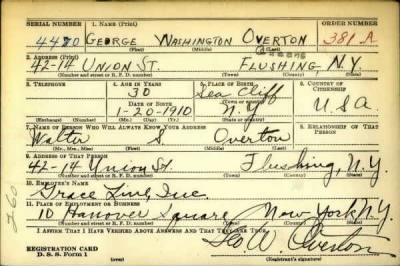 SERIAL NUMBER 1. NAME (Print) ORDER NUMBER
4480 GEORGE WASHINGTON OVERTON 381 A
(First) (Middle) (Last)
2. ADDRESS (Print)
42-14 UNION ST. FLUSHING, N.Y.
(Number and street or R. F. D. number) (Town) (County) (State)
3. TELEPHONE 4. AGE IN YEARS 5. PLACE OF BIRTH 6. COUNTRY OF CITIZENSHIP
30 Sea Cliff
DATE OF BIRTH (Town or county)
1-20-1910 N.Y U.S.A
(Exchange) (Number) (Mo.) (Day) (Yr.) (State or country)
7. NAME OF PERSON WHO WILL ALWAYS KNOW YOUR ADDRESS 8. RELATIONSHIP OF THAT PERSON
Walter S Overton
(Mr., Mrs., Miss) (First) (Middle) (Last)
9. ADDRESS OF THAT PERSON
42-14 Union St. Flushing, N.Y.
(Number and street or R. F. D. number) (Town) (County) (State)
10. EMPLOYER'S NAME
Grace Line, Inc.
11. PLACE OF EMPLOYMENT OR BUSINESS
10 Hanover Square New York N.Y.
(Number and street or R. F. D. number) (Town) (County) (State)
I AFFIRM THAT I HAVE VERIFIED ABOVE ANSWERS AND THAT THEY ARE TRUE.
REGISTRATION CARD
D. S. S. Form 1 Geo. W. Overton
(Registrant's signature)